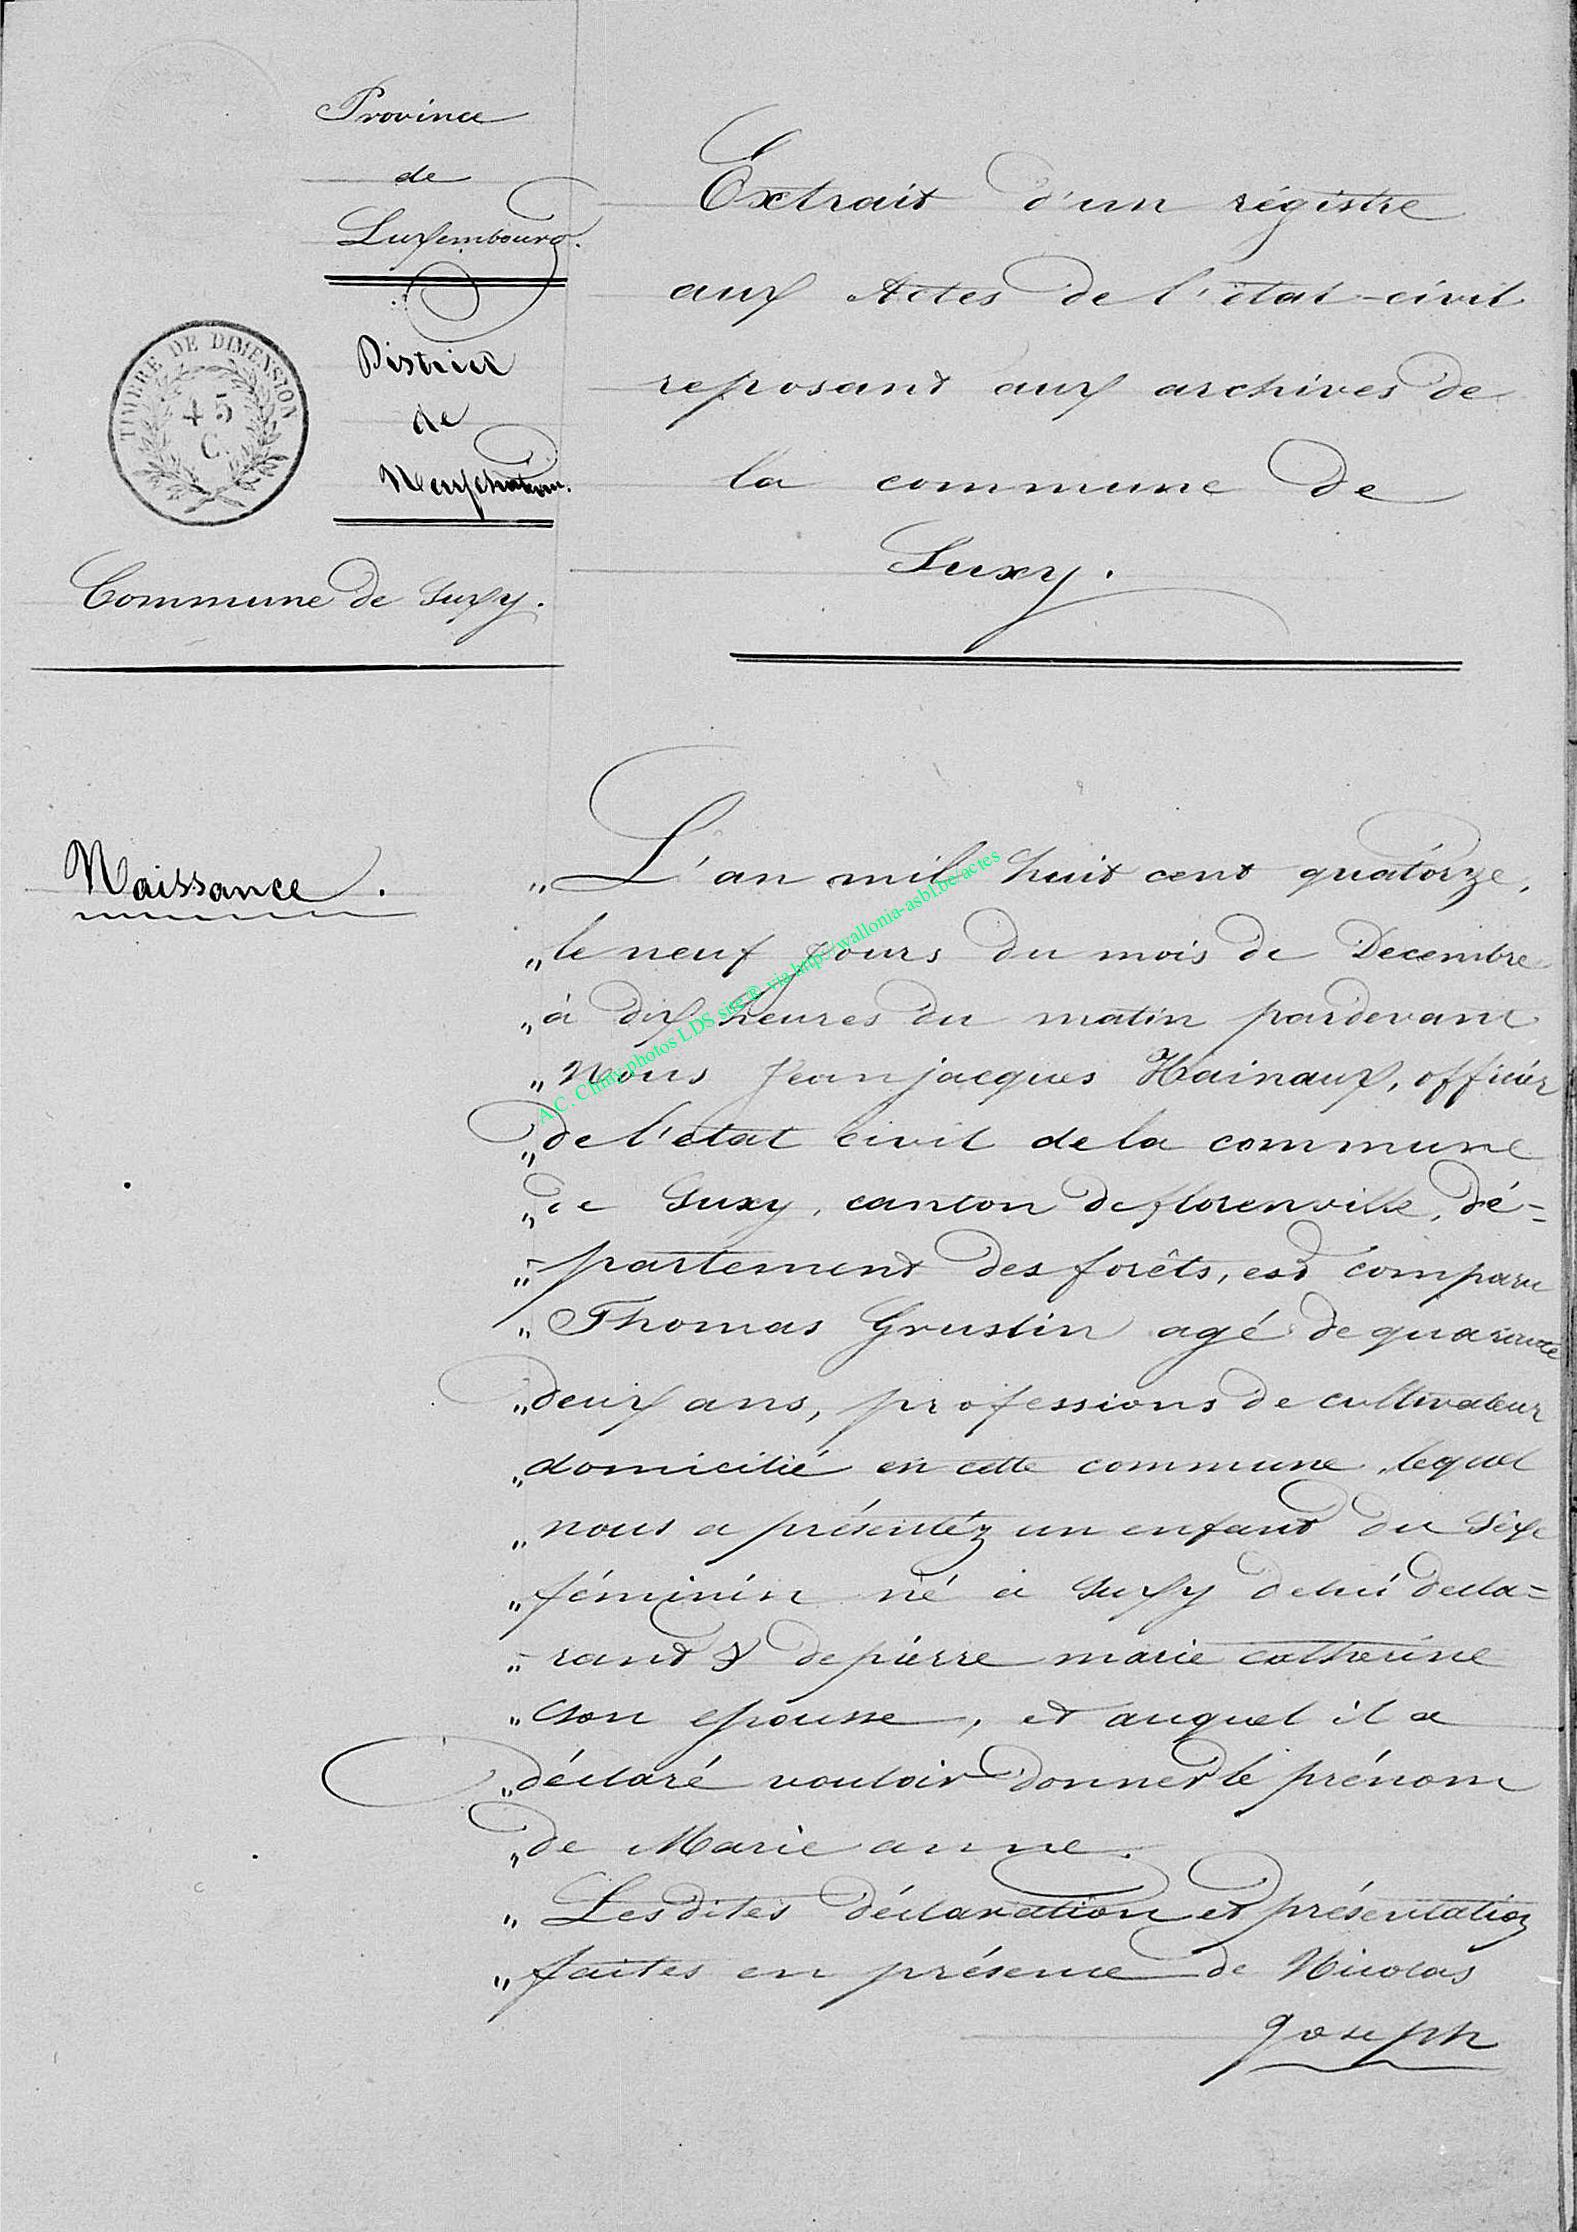 Province
de
Luxembourg.
District
de
Neufchateau.
TIMBRE DE DIMENSION
45
C.
Commune de Suxy.
Extrait d'un régistre
aux Actes de l'état-civil
reposant aux archives de
la commune de
Suxy.
Naissance.
„ L'an mil huit cent quatorze,
„ le neuf jours du mois de Decembre
„ à dix heures du matin pardevant
„ Nous Jean jacques Hainaux, officier
„ de l'état civil de la commune
„ de Suxy, canton de florenville, dé=
„ partement des forêts, est comparu
„ Thomas Grustin agé de quarante
„ deux ans, professions de cultivateur
„ domicilié en cette commune, lequel
„ nous a présentéz un enfant du Sexe
„ féminin né à Suxy de lui decla=
„ rant & de pierre marie catherine
„ son epouse, et auquel il a
„ déclaré vouloir donner le prénom
„ de Marie anne.
„ Les dites déclaration et présentation
„ faites en présence de Nicolas
Joseph
A.C. Chiny photos LDS sits ® via http://wallonia-asbl.be/actes